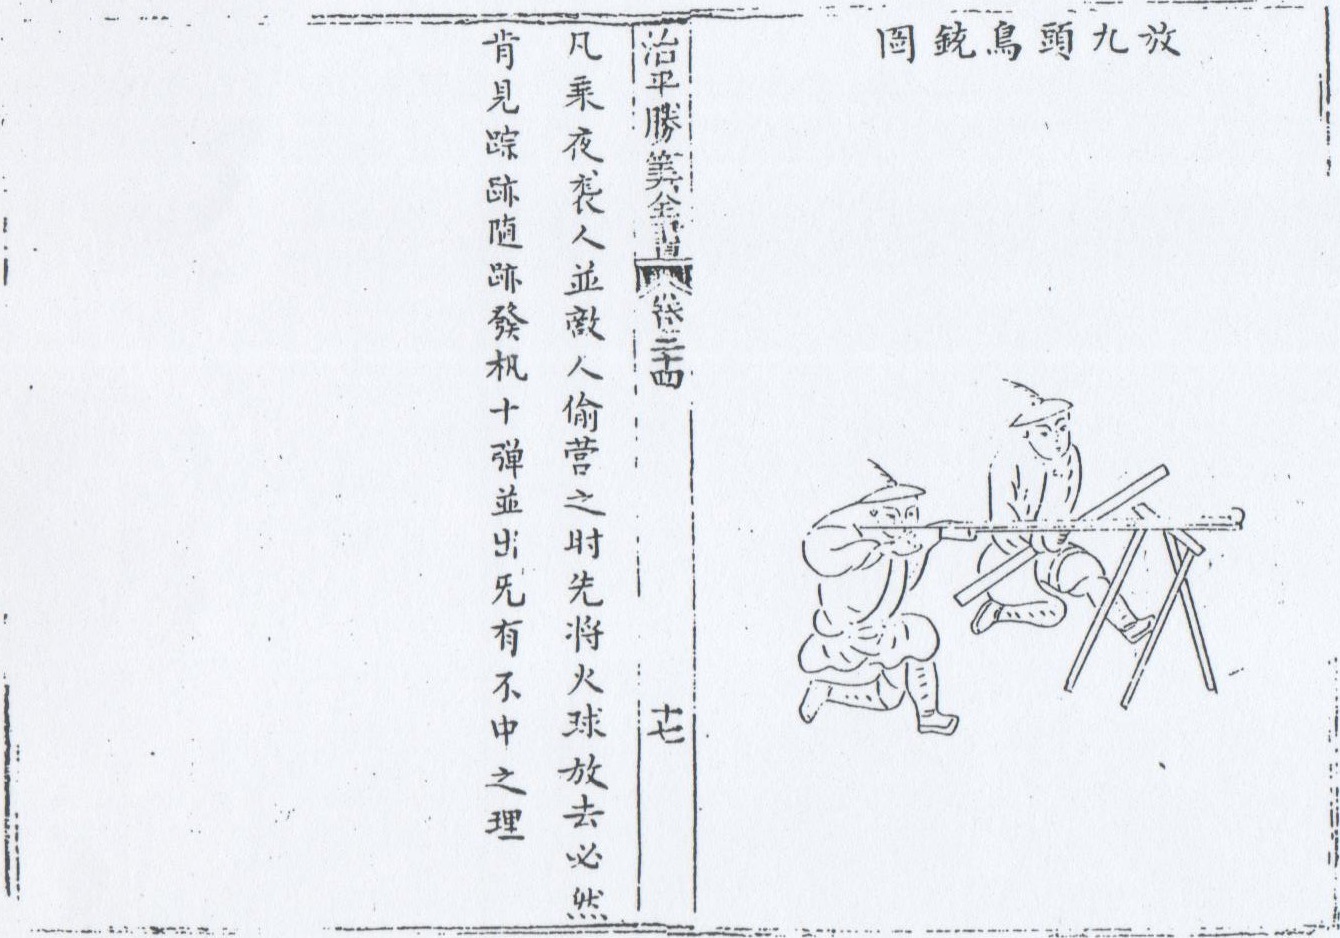 放九頭鳥銃圖
治平勝筭全書 卷二十四 十七
凡乘夜袭人並敵人偷营之时先将火球放去必然
肯見踪跡随跡發机十弹並出旡有不中之理